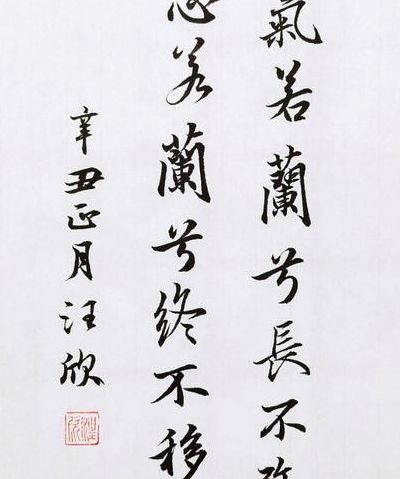 氣若蘭兮長不改
心若蘭兮終不移
辛丑正月汪欣